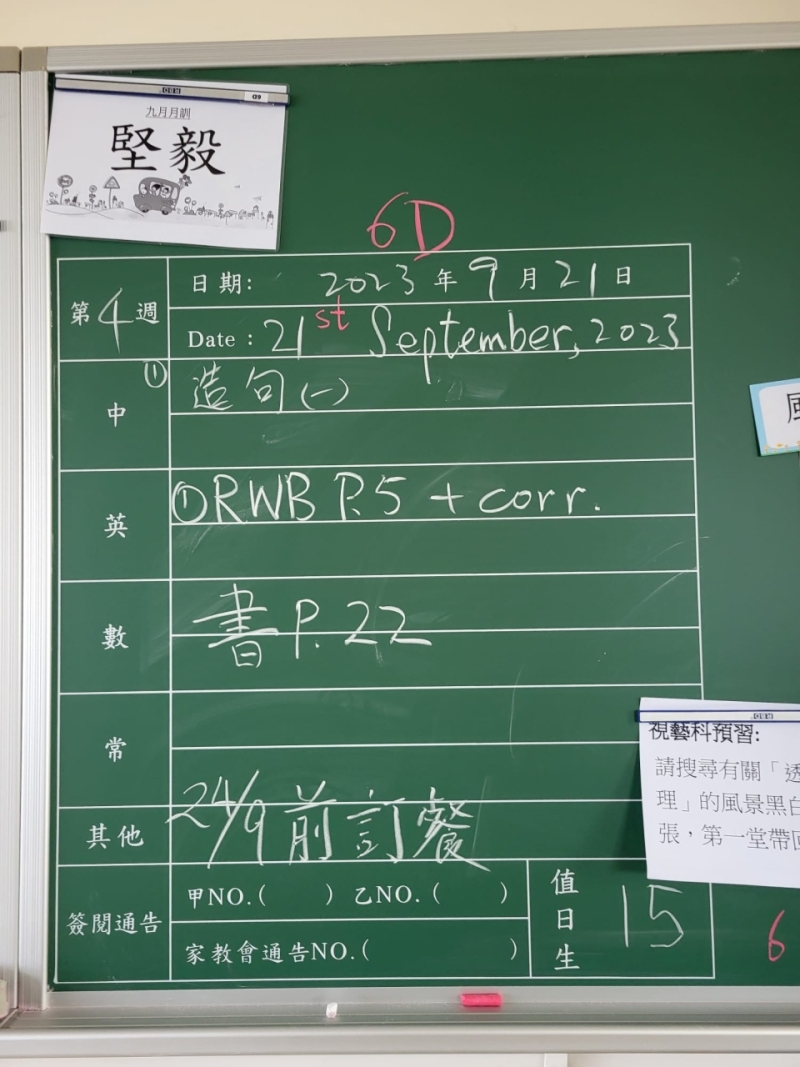 九月月訓
堅毅
6D
第4週
日期: 2023年9月21日
Date : 21st September, 2023
中
① 造句(一)
英
①RWB P.5 + corr.
數
書 P.22
常
其他
24/9前訂餐
簽閱通告
甲NO.( ) 乙NO.( )
家教會通告NO.( )
值日生
15
風
視藝科預習:
請搜尋有關「透
理」的風景黑白
張，第一堂帶回
6